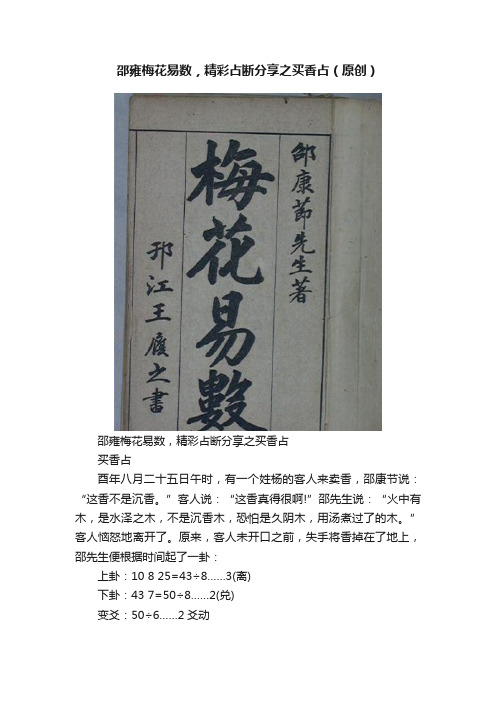 邵雍梅花易数，精彩占断分享之买香占（原创）
邵康节先生著
梅花易數
邗江王廣之書
邵雍梅花易数，精彩占断分享之买香占
买香占
酉年八月二十五日午时，有一个姓杨的客人来卖香，邵康节说：
“这香不是沉香。”客人说：“这香真得很啊!”邵先生说：“火中有
木，是水泽之木，不是沉香木，恐怕是久阴木，用汤煮过了的木。”
客人恼怒地离开了。原来，客人未开口之前，失手将香掉在了地上，
邵先生便根据时间起了一卦：
上卦：10 8 25=43÷8……3(离)
下卦：43 7=50÷8……2(兑)
变爻：50÷6……2爻动